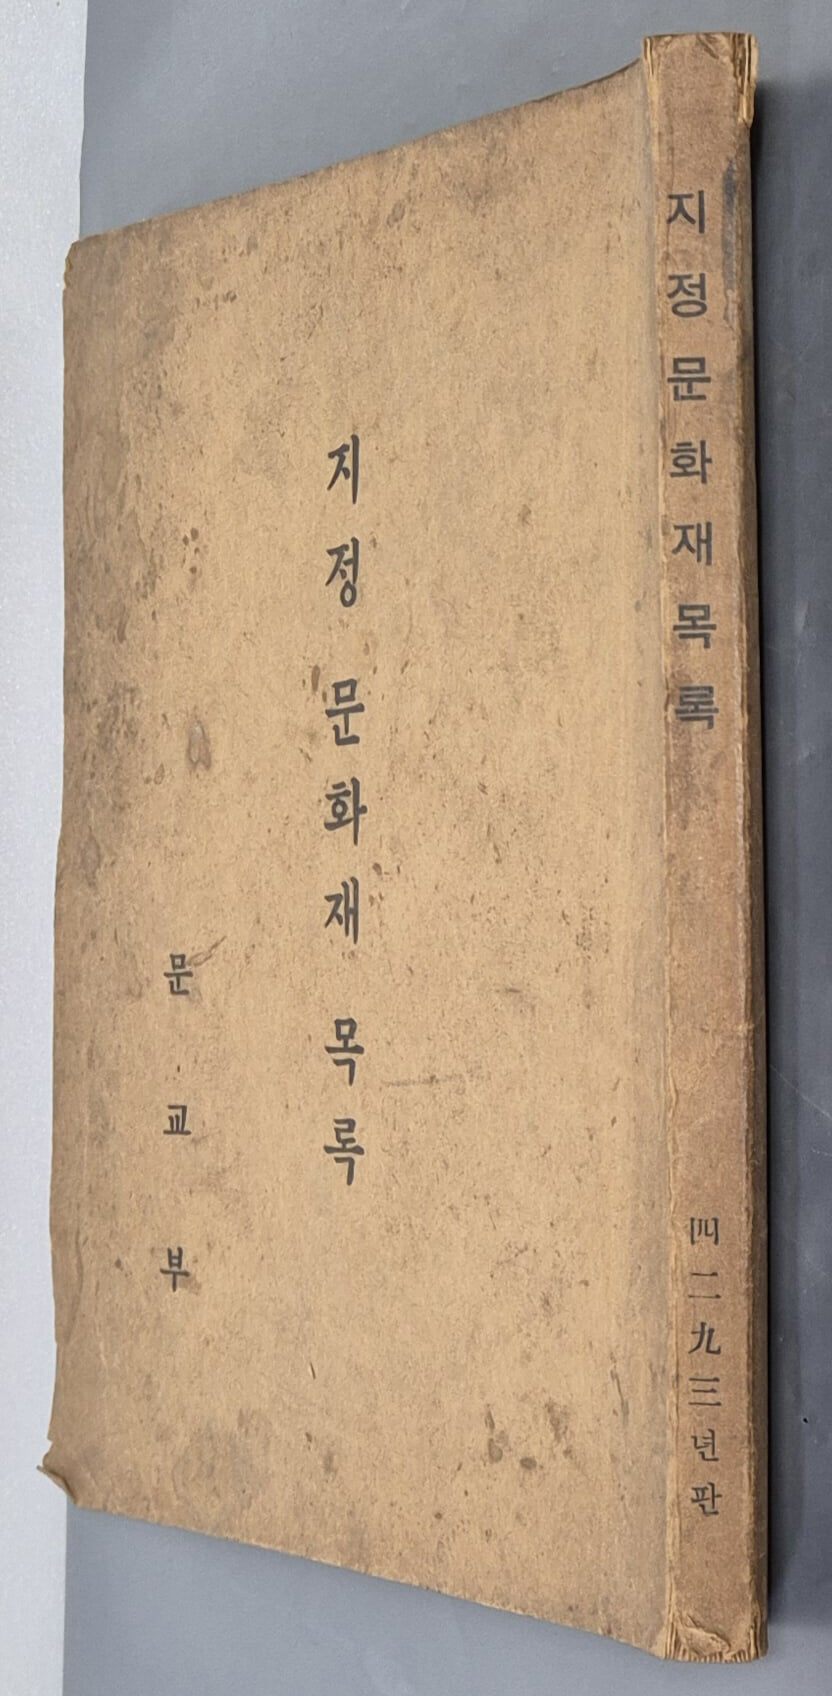 지정 문화재 목록
문교부
지정문화재목록
四二九三년판